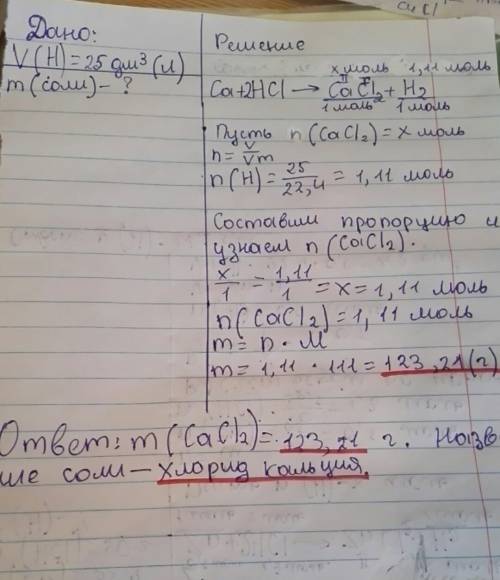 Дано:
V(H)=25 дм³(л)
m(соли)-?
Решение
x моль 1,11 моль
Ca+2HCl → CaCl₂ + H₂
1 моль 1 моль
Пусть n(CaCl₂)=x моль
n=V/Vm
n(H)=25/22,4=1,11 моль
Составим пропорцию и
узнаем n(CaCl₂).
x/1=1,11/1=x=1,11 моль
n(CaCl₂)=1,11 моль
m=n·M
m=1,11·111=123,21(г)
Ответ: m(CaCl₂)=123,21 г. Назв
ие соли-хлорид кальция.